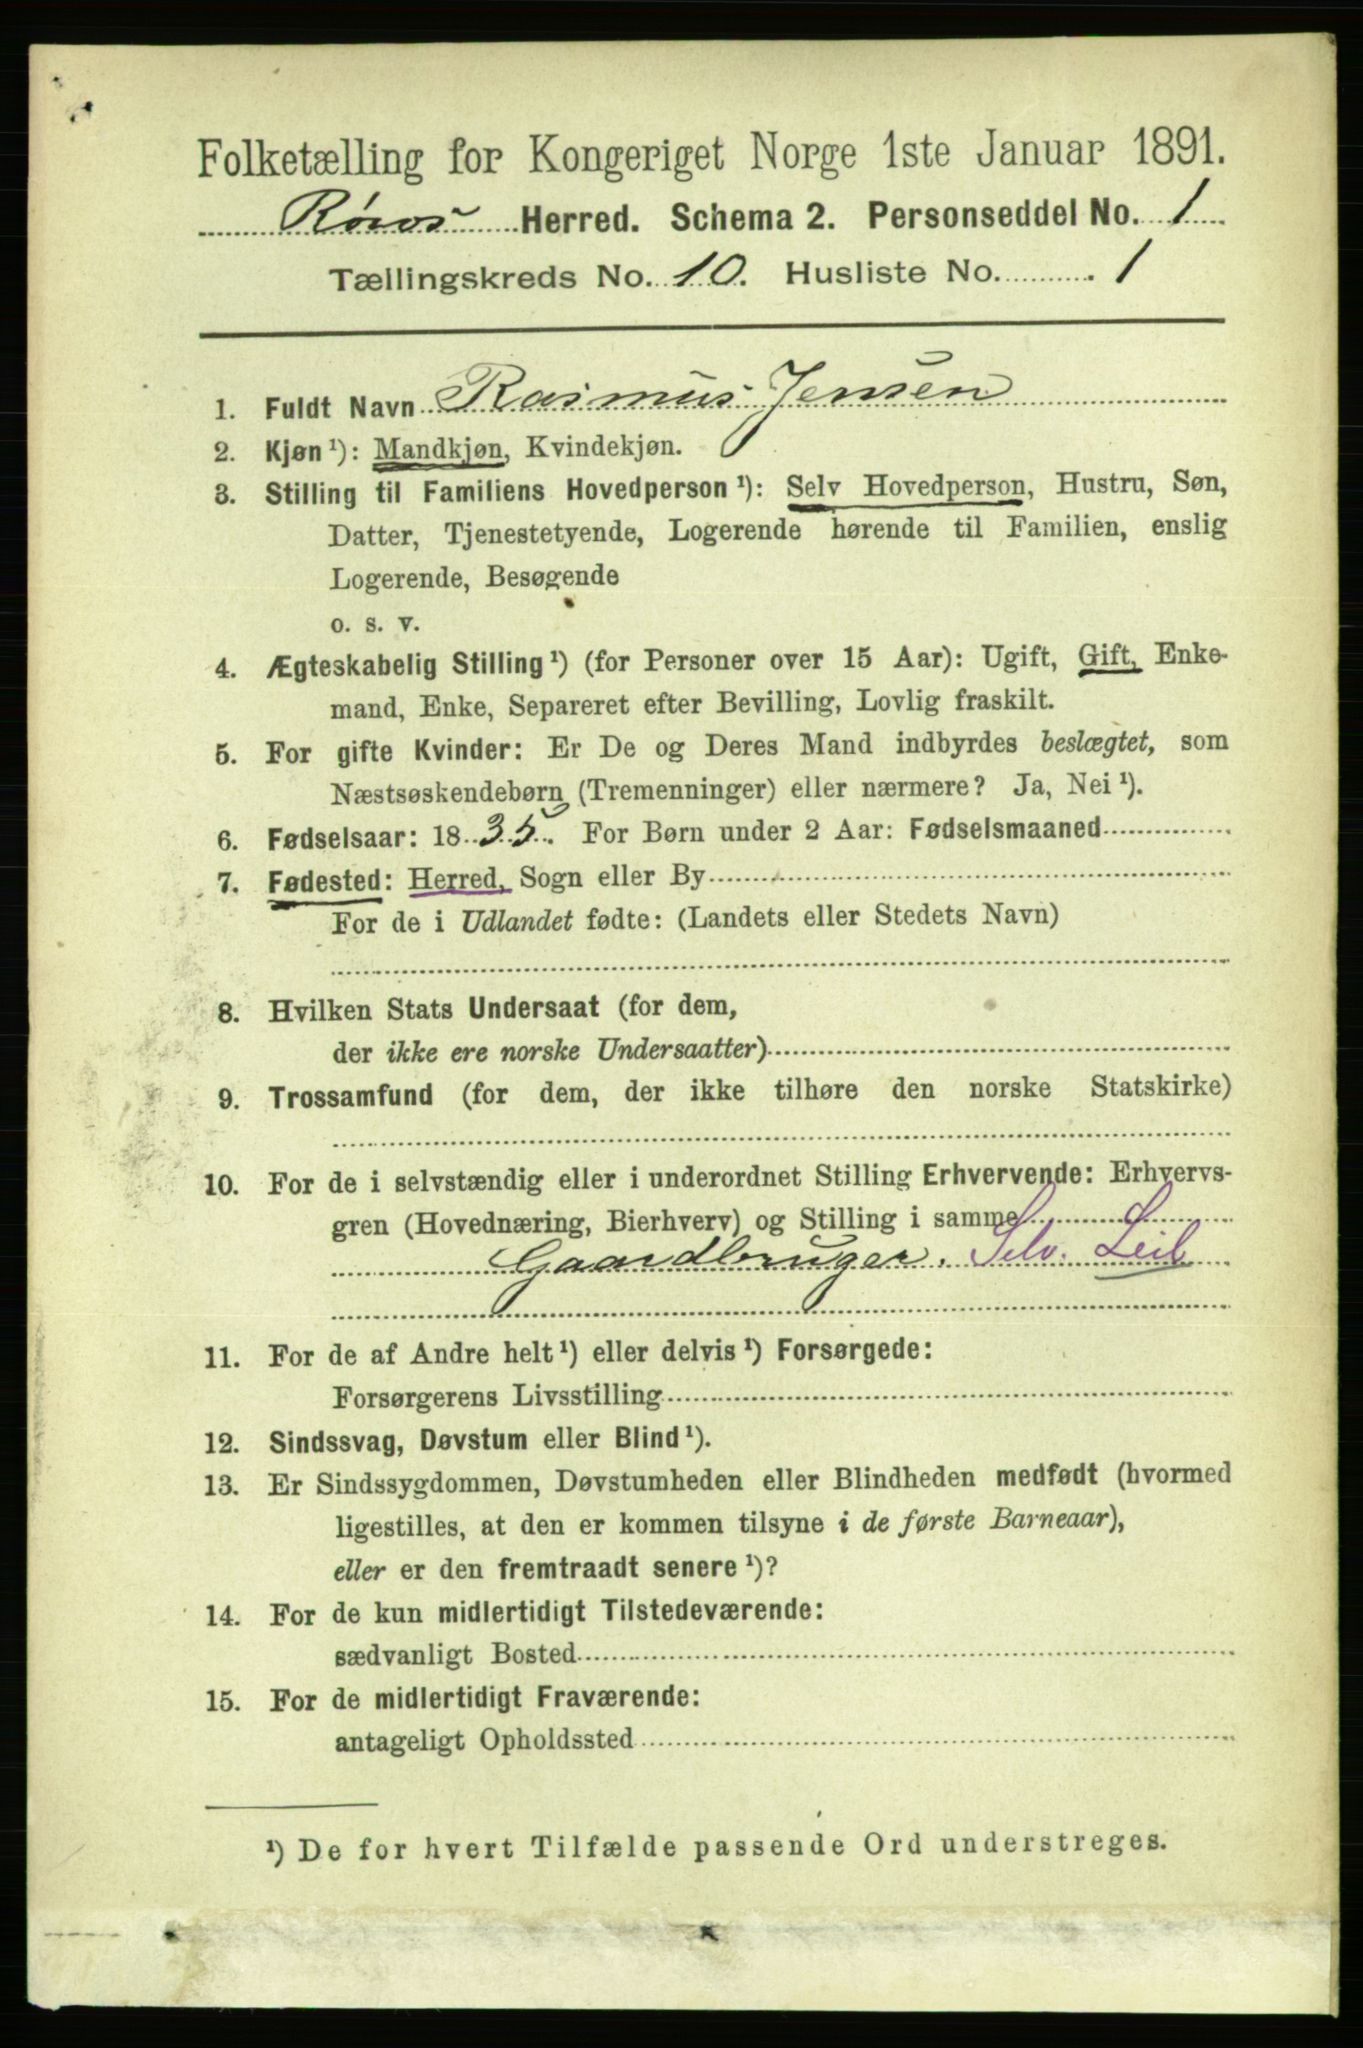 Folketælling for Kongeriget Norge 1ste Januar 1891.
Røros Herred. Schema 2. Personseddel No. 1
Tællingskreds No. 10. Husliste No. 1
1. Fuldt Navn Rasmus Jensen
2. Kjøn ¹): Mandkjøn, Kvindekjøn.
3. Stilling til Familiens Hovedperson ¹): Selv Hovedperson, Hustru, Søn,
Datter, Tjenestetyende, Logerende hørende til Familien, enslig
Logerende, Besøgende
o. s. v.
4. Ægteskabelig Stilling ¹) (for Personer over 15 Aar): Ugift, Gift, Enke-
mand, Enke, Separeret efter Bevilling, Lovlig fraskilt.
5. For gifte Kvinder: Er De og Deres Mand indbyrdes beslægtet, som
Næstsøskendebørn (Tremenninger) eller nærmere? Ja, Nei ¹).
6. Fødselsaar: 1835. For Børn under 2 Aar: Fødselsmaaned
7. Fødested: Herred, Sogn eller By
For de i Udlandet fødte: (Landets eller Stedets Navn)
8. Hvilken Stats Undersaat (for dem,
der ikke ere norske Undersaatter)
9. Trossamfund (for dem, der ikke tilhøre den norske Statskirke)
10. For de i selvstændig eller i underordnet Stilling Erhvervende: Erhvervs-
gren (Hovednæring, Bierhverv) og Stilling i samme
Gaardbruger. Selv. Leil
11. For de af Andre helt ¹) eller delvis ¹) Forsørgede:
Forsørgerens Livsstilling
12. Sindssvag, Døvstum eller Blind ¹).
13. Er Sindssygdommen, Døvstumheden eller Blindheden medfødt (hvormed
ligestilles, at den er kommen tilsyne i de første Barneaar),
eller er den fremtraadt senere ¹)?
14. For de kun midlertidigt Tilstedeværende:
sædvanligt Bosted
15. For de midlertidigt Fraværende:
antageligt Opholdssted
¹) De for hvert Tilfælde passende Ord understreges.